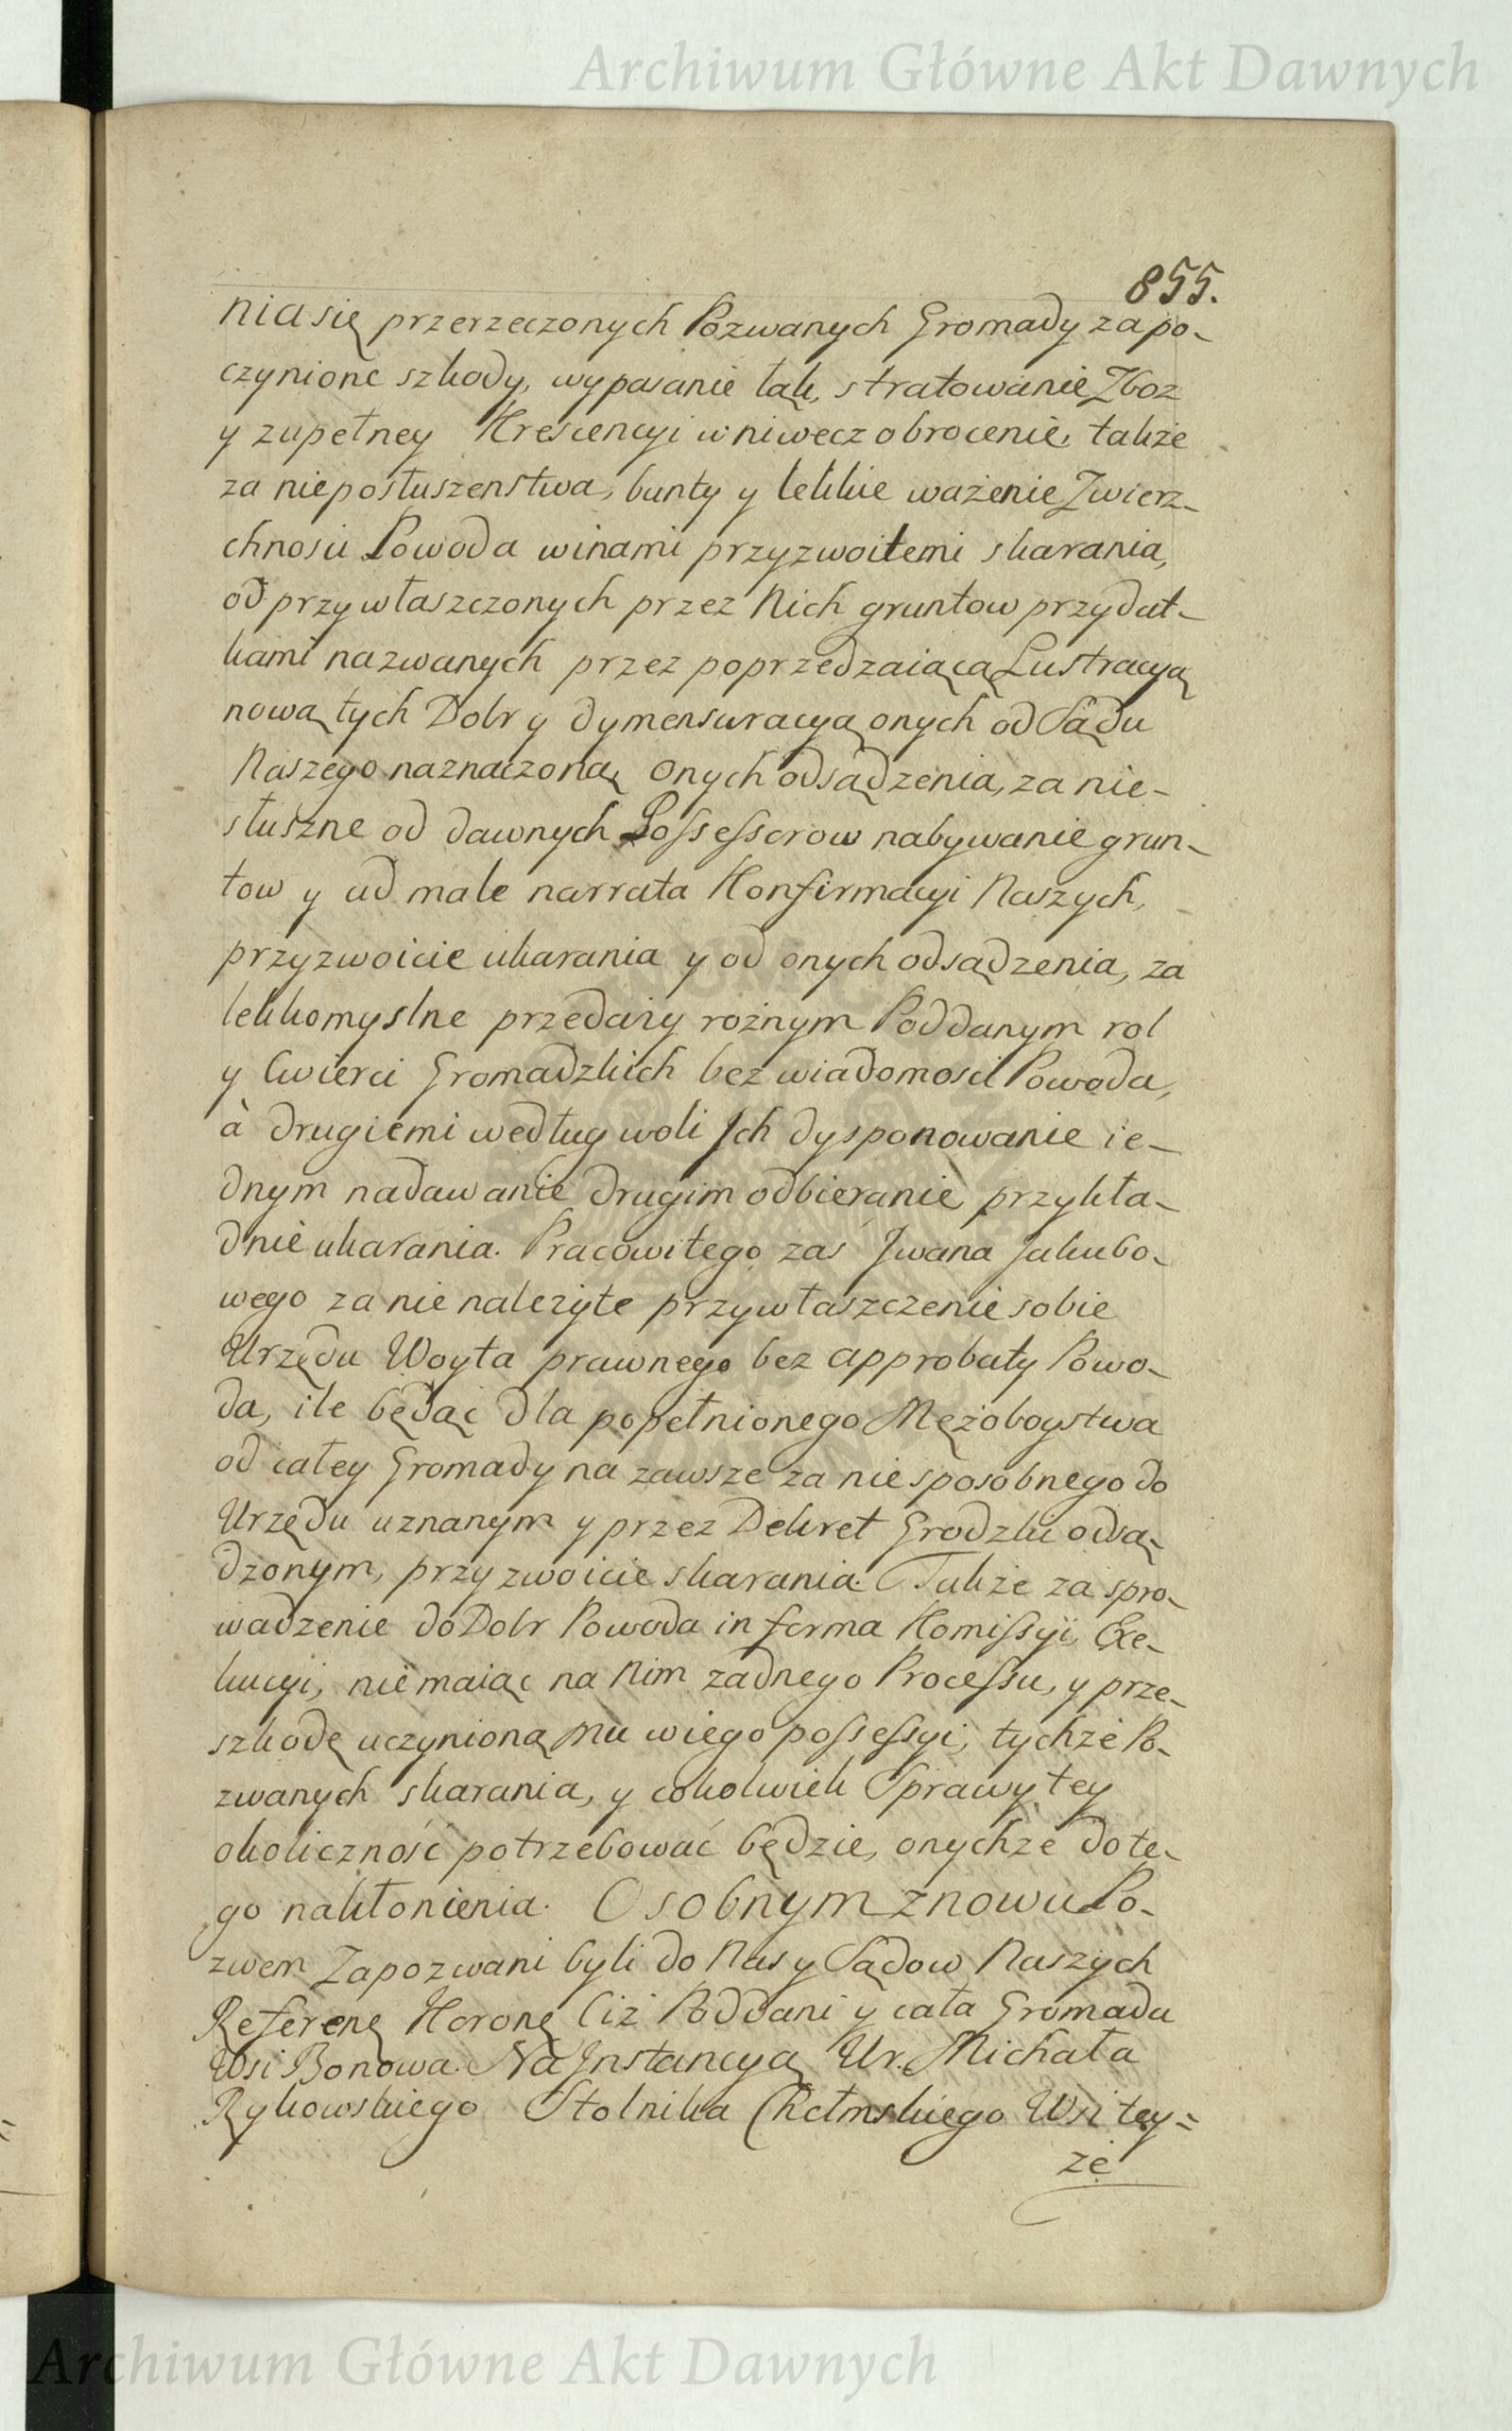 Archiwum Główne Akt Dawnych
855.
nia się przerzeczonych Pozwanych Gromady za po-
czynione szkody, wypasanie łąk, stratowanie Zboz
y zupełney Krescencyi w niwecz obrocenie, także
za nieposłuszenstwa, bunty y lekkie ważenie Zwierz-
chnosci Powoda winami przyzwoitemi skarania,
od przywłaszczonych przez Nich gruntow przydat-
kami nazwanych przez poprzedzaiącą Lustracyą
nową tych Dobr y dymensuracyą onych od Sądu
Naszego naznaczoną, onych odsądzenia, za nie-
słuszne od dawnych Possessorow nabywanie grun-
tow y ad male narrata Konfirmacyi Naszych,
przyzwoicie ukarania y od onych odsądzenia, za
lekkomyslne przedaży rożnym Poddanym rol
y cwierci Gromadzkich bez wiadomosci Powoda,
à drugiemi według woli Jch dysponowanie ie-
dnym nadawanie drugim odbieranie, przykła-
dnie ukarania. Pracowitego zas Jwana Jakubo-
wego za nie należyte przywłaszczenie sobie
Urzędu Woyta prawnego bez approbaty Powo-
da, ile będąc dla popełnionego Mężoboystwa
od całey Gromady na zawsze za nie sposobnego do
Urzędu uznanym y przez Dekret Grodzki odsą-
dzonym, przyzwoicie skarania. Także za spro-
wadzenie do Dobr Powoda in forma Komissyi, Exe-
kucyi, nie maiąc na Nim zadnego Processu, y prze-
szkodę uczynioną Mu w iego possessyi, tychże Po-
zwanych skarania, y cokolwiek Sprawy tey
okoliczność potrzebować będzie, onychże do te-
go nakłonienia. Osobnym znowu Po-
zwem Zapozwani byli do Nas y Sądow Naszych
Referenę Koronę Ciż Poddani y cała Gromada
Wsi Bonowa. Na Jnstancyą Ur. Michała
Rykowskiego Stolnika Chełmskiego Wsi tey=
że
Archiwum Główne Akt Dawnych